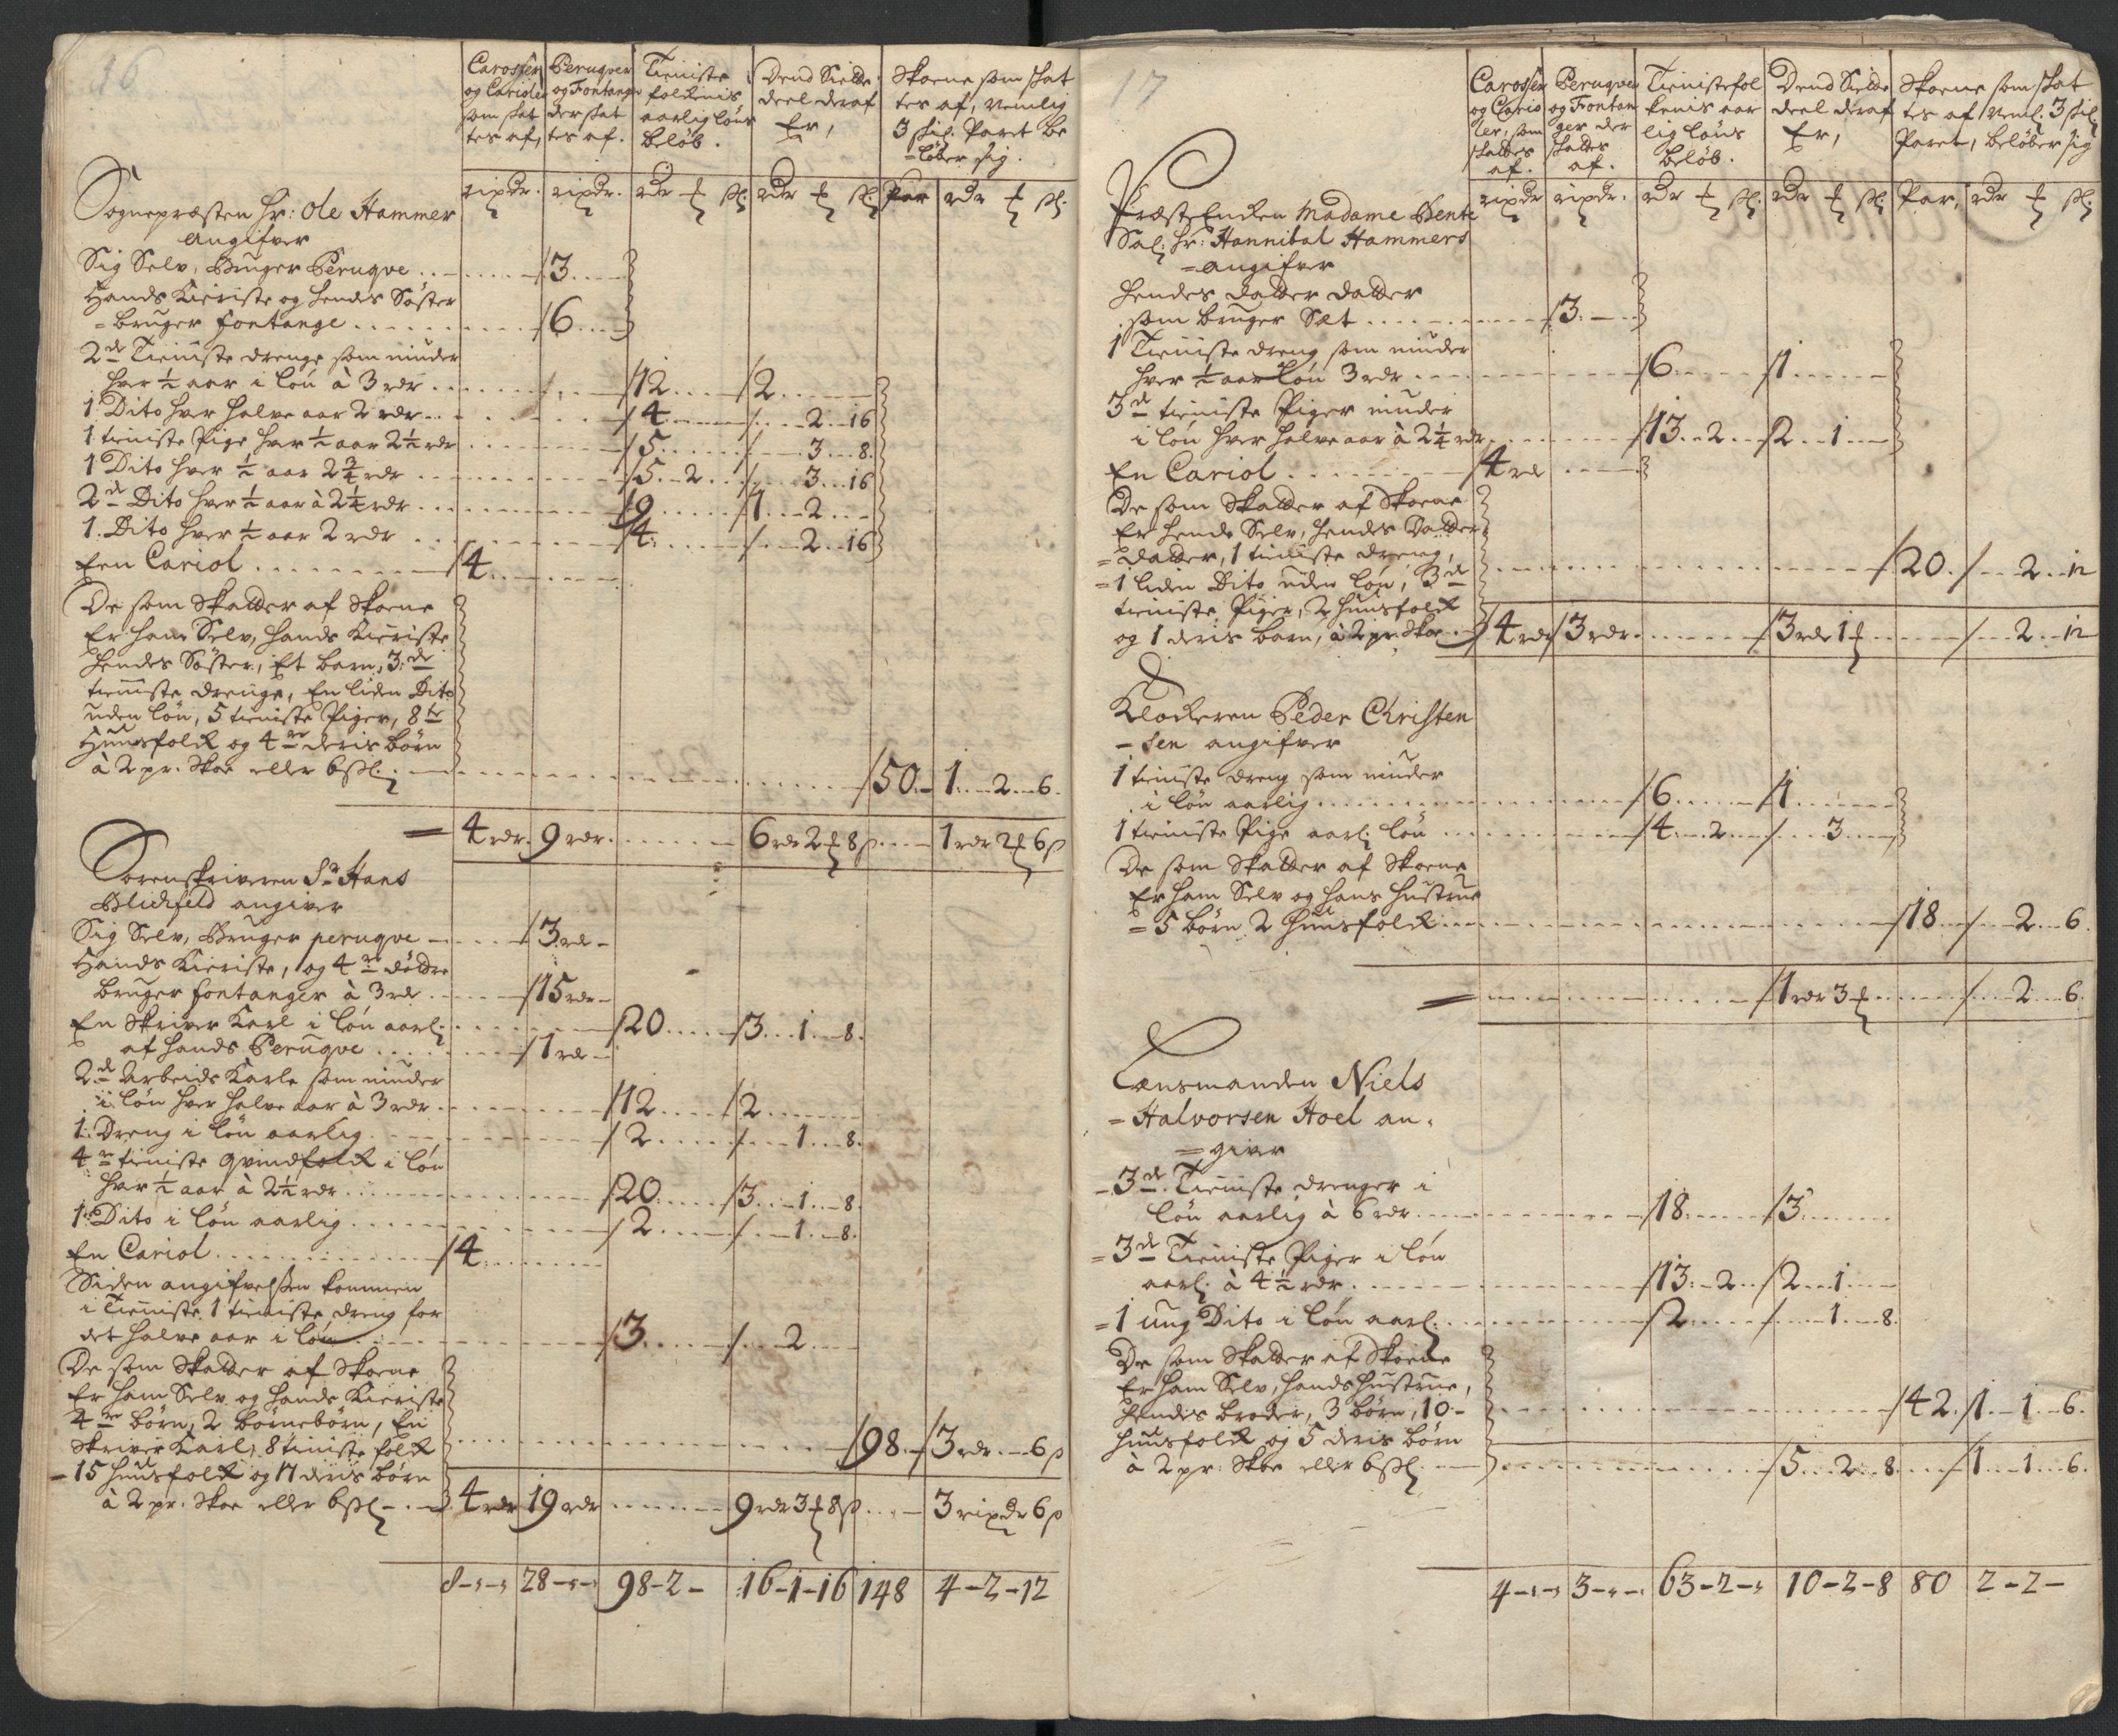 16
Carosser og Carioler som skattes af,
Peruqver og Fontanger der skattes af.
Tieniste folckenis aarlig löns beløb.
Dend Siette deel deraf Er,
Skoene som skattes af, nemlig 3 skil. Paret beløber sig.
rixdr. rixdr. rdr sk: rdr sk: Par rdr sk:
Sognepræsten Hr: Ole Hammer
angifver
Sig Selv, Bruger Peruqve 3
Hands Kieriste og hendis Söster
bruger fontange 6
2de Tieniste drenge som niuder
hver ½ aar i lön à 3 rdr 12 2
1 Dito hver halve aar 2 rdr 4 2 16
1 tieniste Pige hver ½ aar 2½ rdr 5 3 8
1 Dito hver ½ aar 2¾ rdr 5 2 3 16
2de Dito hver ½ aar à 2¼ rdr 9 1 2
1. Dito hver ½ aar 2 rdr 4 2 16
Een Cariol 4
De som Skatter af Skoene
Er ham Selv, hands Kieriste
hendes Söster, Et barn, 3de
tieniste drenge, En liden Dito
uden lön, 5 tieniste Piger, 8te
Huusfolck og 4re deris börn
à 2 pr. Skoe eller 6 skl. 50 1 2 6
4 rdr. 9 rdr. 6 rdr 2 8 s 1 rdr 2 6 s
Sorenskriveren Sr Hans
Blichfeld angiver
Sig Selv, Bruger peruqve 3 rd
Hands Kieriste, og 4re döttre
bruger fontanger à 3 rd 15 rdr
En Skriver Karl i lön aarl. 20 3 1 8
af hands Peruqve 1 rd
2de Arbeids Karle som niuder
i lön hver halve aar à 3 rdr 12 2
1. Dreng i lön aarlig 2 1 8
4re tieniste qvindfolck i lön
hver ½ aar à 2½ rdr 20 3 1 8
1. Dito i lön aarlig 2 1 8
En Cariol 4
Siden angifvelssen kommen
i Tieniste 1 tieniste dreng for
det halve aar i lön 3 2
De som Skatter af Skoene
Er ham Selv og hands Kieriste
4re börn, 2 börnebörn, En
Skriver Karl, 8 tieniste folck
15 huusfolck og 17 deris börn 98 3 rdr 6 s
à 2 pr: Skoe eller 6 skl 4 rdr 19 rdr 9 rdr 3 8 s 3 rixdr 6 s
8 28 98-2- 16-1-16 148 4-2-12
17
Carosser og Carioler, som skattes af.
Peruqver og Frontanger der skattes af.
Tienistefolckenis aarlig löns beløb.
Dend Siette deel deraf Er,
Skoene som skattes af, neml. 3 skil. Paret, beløber sig
rixdr rixdr. rdr sk: rdr sk: Par, rdr sk:
PræsteEncken Madame Bente
Sal: Hr: Hannibal Hammers
angifver
hendes datter datter
som bruger Sæt 3
1 Tieniste dreng som niuder
hver ½ aar lön 3 rdr 6 1
3de tieniste Piger niuder
i lön hver halve aar à 2¼ rdr 13 2 2 1
En Cariol 4 rd
De som Skatter af Skoene
Er hende Selv, hendes Datter
Datter, 1 tieniste dreng,
1 liden Dito uden lön, 3de 20 2 12
tieniste Piger, 2 huusfolck
og 1 deris barn, à 2 pr. Skoe 4 rdr 3 rdr 3 rdr 1 2 12
Klockeren Peder Christen
sen angifver
1 tieniste dreng som niuder
i lön aarlig 6 1
1 tieniste Pige aarl: lön 4 2 3
De som Skatter af Skoene
Er ham Selv og hans hustrue
5 börn 2 huusfolck 18 2 6
1 rdr 3 2 6
Lensmanden Niels
Halvorsen Hoel an
giver
3de Tieniste drenger i
lön aarlig à 6 rdr 18 3
3de Tieniste Piger i lön
aarl. à 4½ rdr 13 2 2 1
1 ung Dito i lön aarl. 2 1 8
De som Skatter af Skoene
Er ham Selv, hands hustrue,
hendis broder, 3 börn, 10 42 1 1 6
huusfolck og 5 deris börn
à 2 pr: Skoe eller 6 skl 5 2 8 1 1 6
4 3 63-2 10-2-8 80 2-2-